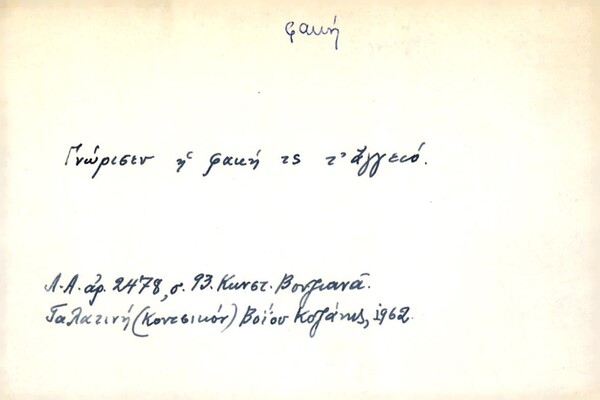 φακή
Γνώρισεν ἡ φακή τς τ' ἀγγειό.
Λ.Α. ἀρ. 2478, σ. 93. Κωνστ.
Γαλατινή (Κοντσικόν) Βοΐου Κοζάνης, 1962